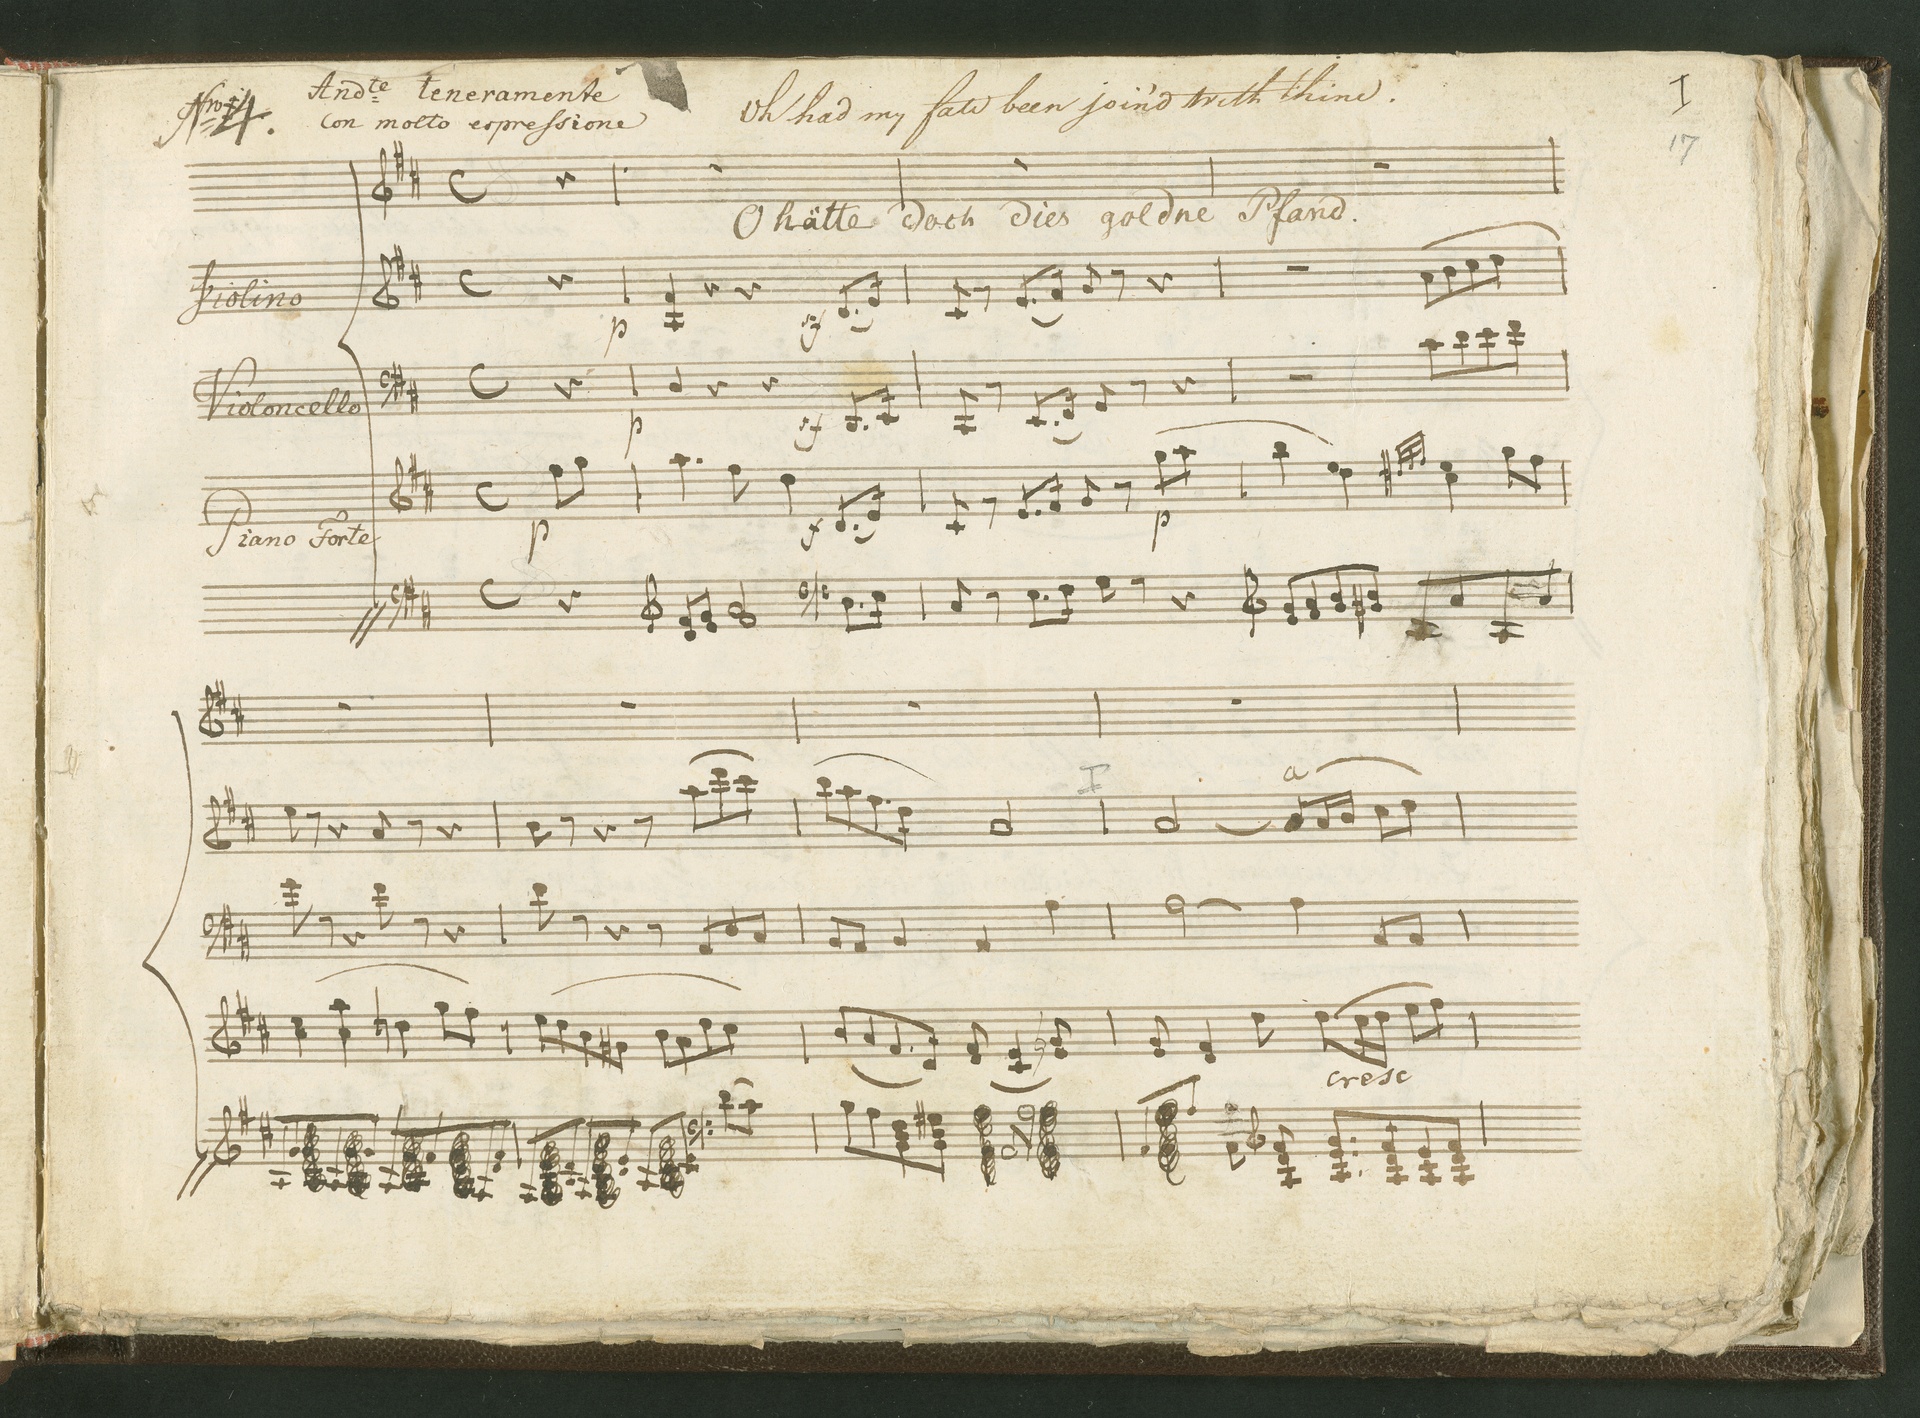 Nro 4. Andte teneramente
con molto espressione
Oh had my fate been join'd with thine.
I
17
O hätte doch dies goldne Pfand.
Violino
p
sf
Violoncello
p
sf
Piano Forte
p
f
p
a
cresc